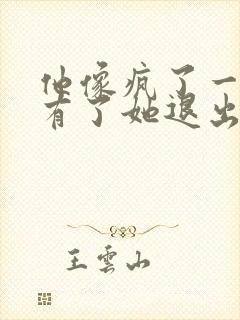 他像疯了一
有了她退出
王雲山